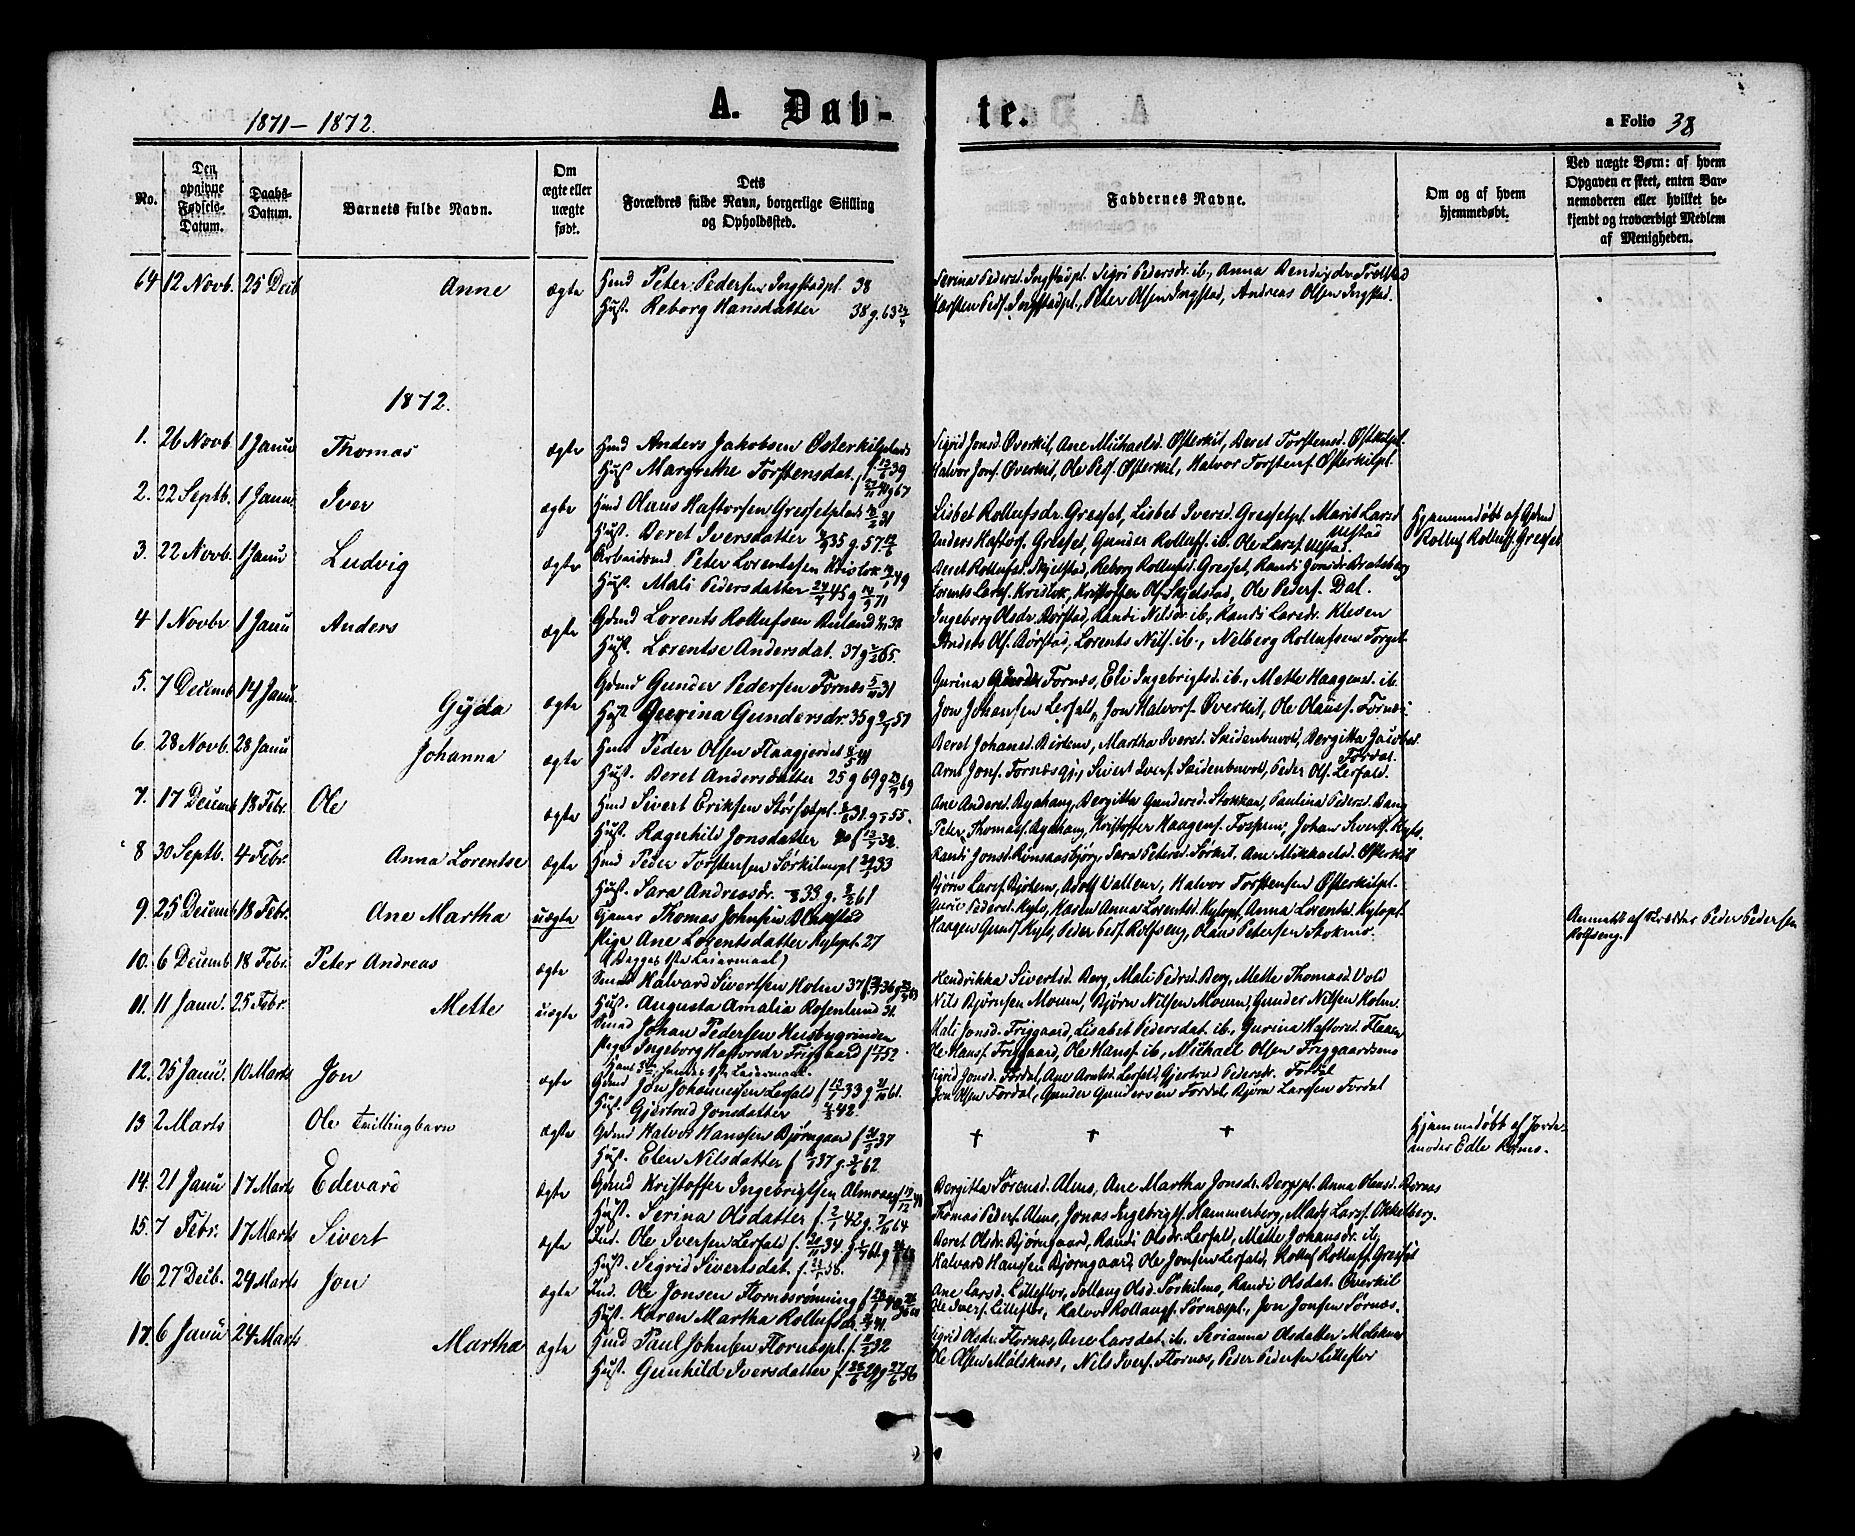 1871–1872.
A. Døb- te.
a Folio 38
No.
Den opgivne Fødsels-Datum.
Daabs-Datum.
Barnets fulde Navn.
Om ægte eller uægte født.
Dets Forældres fulde Navn, borgerlige Stilling og Opholdssted.
Faddernes Navne.
Om og af hvem hjemmedøbt.
Ved uægte Børn: af hvem Opgaven er skeet, enten Barnemoderen eller hvilket bekjendt og troværdigt Medlem af Menigheden.
64 12 Novb. 25 Decb Anne ægte Hmd Peter Pedersen Ingstadpl. 38
Hust. Reborg Hansdatter 38 g. 63
Serina Pedersd. Ingstadpl. Sigri Pedersdr. ib., Anna
Karsten Peds. Ingstadpl., Peter Olsen Ingstad, Andreas Olsen Ingstad.
1872.
1. 26 Novb. 1 Janu Thomas ægte Hmd Anders Jakobsen Østerkilplads
Hust Margrethe Torstensdat. 39
Sigrid Jonsd. Øverkil, Ane Michaelsd. Østerkil, Beret Torstensd. Østkilpl.
Halvor Jons. Øverkil, Ole Peds. Østerkil, Halvor Torstens. Østerkilpl.
2. 22 Septb. 1 Janu. Iver ægte Hmd Olaus Hastorsen Gressetplads 31
Hust. Beret Iversdatter 35 g. 57
Lisbet Rollufsdr. Gresset, Lisbet Iversd. Gressetpl. Marit Larsd. Ulstad
Anders Hastors. Gresset, Gunder Rollufs. ib. Ole Lars. Ulstad.
Hjemmedøbt af Gdmd Rolluf Rollufs. Gresset
3. 22 Novb. 1 Janu Ludvig ægte Arbeidsmd Peter Lorentsen 49
Hust. Mali Pedersdatter 45 g 71
Beret Rollufsd. Skjelstad, Reborg Rollufsd. Gresset, Randi Jonsdr Bratsberg
Lorents Lars. Kristoffer Ols. Skjelstad, Ole Peders. Dal.
4 1 Novbr 1 Janu Anders ægte Gdmd Lorents Rollufsen Ruland 32
Hust. Lorentse Andersdat. 37 g 65.
Ingeborg Olsdr. Børstad, Randi Nilsdr ib., Randi Larsdr. Klesen
Anders Ols. Børstad, Lorents Nils. ib., Nilberg Rollufsen Forget
5. 7 Decemb 14 Janu. Gyda ægte Gdmd Gunder Pedersen Fornes 31
Hust Gurina Gundersdr. 35 g 57
Gurina Fornes, Eli Ingebrigtsd. ib., Mette Haagensd. ib.
Jon Johansen Lerfald, Jon Halvors. Øverkil, Ole Olauss. Fornes
6. 28 Novb. 28 Janu Johanna ægte Hmd Peder Olsen Flaagjerdet 44
Hust. Beret Andersdatter 25 g 69
Beret Johansd. Birtem, Martha Iversd. Skidenbuvold, Bergitta Fordal.
Arnt Jons. Fornesgj., Sivert Ivers. Skidenbuvold, Peder Ols. Lerfald.
7. 17 Decemb 18 Febr. Ole ægte Hmd Sivert Eriksen Størsetpl. 31. g. 55.
Hust. Ragnhild Jonsdatter 32
Ane Andersd. Byahaug, Bergitta Gundersd. Stokkan, Paulina Petersd. Bang
Peter Thomas. Byahaug, Kristoffer Haagens. Johan Siverts.
8 30 Septb. 4 Febr. Anna Lorentse ægte Hmd Peder Torstensen Sørkilmopl 33
Hust. Sara Andreasdr. 33 g. 61
Randi Jonsd. Rønsaasbjørg, Sara Petersd. Sørkil. Ane Mikkaelsd. Østerkil
Bjørn Lars. Birtem, Adolf Halvor Torstensen Østerkilpl.
9 25 Decemb 18 Febr. Ane Martha uægte Gjener Thomas Johnsen
Pige Ane Lorentsdatter Kylopl. 27
(Begges 1ste Leiermaal)
Pedersd. Kylo, Anna Lorentsd. Kylopl, Anna Lorentsd. Kylopl.
Haagen Gunds. Kylo, Peder Peds. Rolfseng, Olaus Petersen Stokmo.
Anmeldt af Peder Pedersen Rolfseng.
10. 6 Decemb 18 Febr. Peter Andreas ægte Smed Halvard Sivertsen Holm 37
Hust. Augusta Amalia Rosenlund 31.
Hendrikka Sivertsd. Berg, Mali Pedersd. Berg, Mette Thomasd. Vold
Nils Bjørnsen Moum, Bjørn Nilsen Moum, Gunder Nilsen Holm.
11. 11 Janu. 25 Febr. Mette uægte Johan Pedersen Husbygrinden
Pige Ingeborg Hastorsdr Friggaard 52
1ste Leiermaal.
Mali Jonsd. Friggaard, Lisabet Pedersdat. ib., Gurina Hastorsd. Flaaen
Ole Hans. Friggaard, Ole Hans. ib., Michael Olsen Friggaardsmo
12. 25 Janu. 10 Marts Jon ægte Gdmd Jon Johannessen Lerfald 33 g 61.
Hust. Gjertrud Jonsdatter 42.
Sigrid Jonsd. Fordal, Ane Arntsd. Lerfald, Gjertrud Pedersdr. Fordal
Jon Olsen Fordal, Gunder Gundersen Fordal, Bjørn Larssen Fordal
13 2 Marts Ole Tvillingbarn ægte Gdmd Halvor Hanssen Bjørngaard f. 37
Hust. Elen Nilsdatter f. 37 g. 62
† † †
Hjemmedøbt af Jordemoder Edle Rømo.
14. 21 Janu 17 Marts Edevard ægte Gdmd Kristoffer Ingebrigtsen Almoaas
Hust. Serina Olsdatter f. 42 g. 64
Bergitta Sørensd. Almo, Ane Martha Jonsdr. Bergspl. Anna Olausd.
Thomas Peders. Almo, Jonas Ingebrigts. Hammerberg, Mads Lars. Okkelberg.
15. 7 Febr. 17 Marts Sivert ægte Ind. Ole Iversen Lerfald f. 34
Hust. Sigrid Sivertsdat. f. 38.
Beret Olsdr. Bjørngaard, Randi Olsdr. Lerfald, Mette Johansdr. ib,
Halvard Hanssen Bjørngaard, Ole Jonsen Lerfald, Rolluf Rollufs. Gresset
16. 27 Decb. 24 Marts Jon ægte Ind. Ole Jonsen Flornesrønning
Hust. Karen Martha Rollufsdr. 41.
Ane Larsd. Lilleflor, Solloug Olsd. Sørkilmo, Randi Olsdat. Øverkil
Ole Ivers. Lilleflor, Halvor Rollaugs. Sørnespl., Jon Jonsen Sørnes.
17. 6 Janu 24 Marts Martha ægte Hmd Paul Johnsen Flornespl. f. 32
Hust. Gunhild Iversdatter f. 29 g 56
Sigrid Olsdr. Flornes, Ane Larsdat. ib. Serianna Olsdatter Molsknes
Ole Olsen Mølsknes, Nils Ivers. Flornes, Peder Pedersen Lilleflor